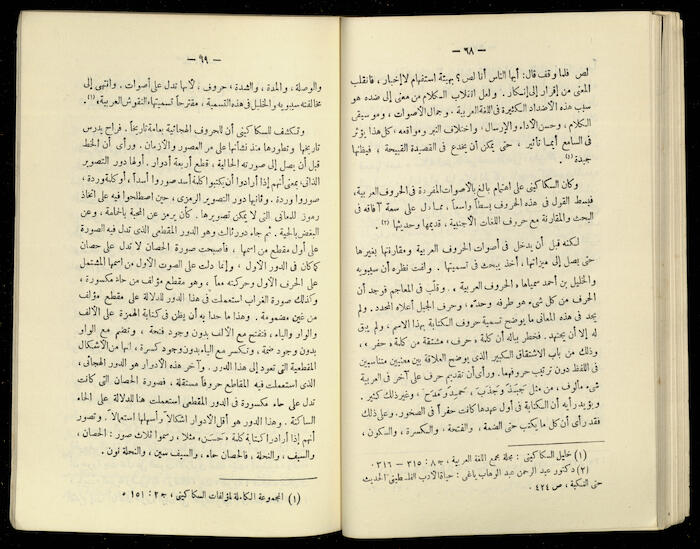 — ٦٨ —
لص فلما وقف قال: أيها الناس أنا لص؟ بهيئة استفهام لا إخبار، فانقلب
المعنى من إقرار إلى إنكار. ولعل انقلاب الكلام من معنى إلى ضده هو
سبب هذه الأضداد الكثيرة في اللغة العربية. وجمال الأصوات، وموسيقى
الكلام، وحسن الأداء والإرسال، واختلاف النبر ومواقعه، كل هذا يؤثر
في السامع أيما تأثير، حتى يمكن أن يخدع في القصيدة القبيحة، فيظنها
جيدة (١).
وكان السكاكيني على اهتمام بالغ بالأصوات المفردة في الحروف العربية،
فبسط القول في هذه الحروف بسطاً واسعاً، مماثل على سعة آفاقه في
البحث والمقارنة مع حروف اللغات الأجنبية، قديمها وحديثها (٢).
لكنه قبل أن يدخل في أصوات الحروف العربية ومقارنتها بغيرها
حتى يصل إلى ميزاتها، أخذ يبحث في تسميتها. ولفت نظره أن سيبويه
والخليل بن أحمد سمياها، الحروف العربية. وقلّب في المعاجم فوجد أن
الحرف من كل شيء هو طرفه وحدّه، وحرف الجبل أعلاه المحدد. ولم
يجد في هذه المعاني ما يوضح تسمية حروف الكتابة بهذا الاسم، ولم يبق
له إلا أن يجتهد. فخطر بباله أن كلمة « حرف » مشتقة من كلمة « حفر »،
وذلك من باب الاشتقاق الكبير الذي يوضح العلاقة بين معنيين متناسبين
في اللفظ دون ترتيب حروفهما. ورأى أن تقديم حرف على آخر في العربية
شيء مألوف، من مثل جَبَذَ وجَذَبَ، حميد ومدح، وغير ذلك كثير.
ويؤيد رأيه أن الكتابة في أول عهدها كانت حفراً في الصخور. وعلى ذلك
فقد رأى أن كل ما يكتب حتى الضمة، والفتحة، والكسرة، والسكون،
(١) خليل السكاكيني: مجلة مجمع اللغة العربية، ج ٨: ٣١٥ — ٣١٦.
(٢) دكتور عبد الرحمن عبد الوهاب ياغي: حياة الأدب الفلسطيني الحديث
حتى النكبة، ص ٤٢٤.
— ٦٩ —
والوصلة، والمدة، والشدة، حروف، لأنها تدل على أصوات. وانتهى إلى
مخالفته سيبويه والخليل في هذه التسمية، مقترحاً تسميتها، النقوش العربية، (١).
وتكشف للسكاكيني أن للحروف الهجائية بعامة تاريخاً. فراح يدرس
تاريخها وتطورها منذ نشأتها على مر العصور والأزمان. ورأى أن الخط
قبل أن يصل إلى صورته الحالية، قطع أربعة أدوار. أولها دور التصوير
الذاتي، بمعنى أنهم إذا أرادوا أن يكتبوا كلمة أسد صوروا أسداً، أو كلمة وردة،
صوروا وردة. وثانيها دور التصوير الرمزي، حين اصطلحوا فيه على اتخاذ
رموز للمعاني التي لا يمكن تصويرها. كأن يرمز عن المحبة بالحمامة، وعن
البغض بالحية. ثم جاء دور ثالث وهو الدور المقطعي الذي تدل فيه الصورة
على أول مقطع من اسمها، فأصبحت صورة الحصان لا تدل على حصان
كما كان في الدور الأول، وإنما دلت على الصوت الأول من اسمها المشتمل
على الحرف الأول وحركته معاً، وهو مقطع مؤلف من حاء مكسورة،
وكذلك صورة الغراب استعملت في هذا الدور للدلالة على مقطع مؤلف
من غين مضمومة. وهذا ما حدا به أن يظن في كتابة الهمزة على الألف
والواو والياء، فتفتح مع الألف بدون وجود فتحة، وتضم مع الواو
بدون وجود ضمة، وتنكسر مع الياء بدون وجود كسرة، انها من الأشكال
المقطعية التي تعود إلى هذا الدور. وآخر هذه الأدوار هو الدور الهجائي،
الذي استعملت فيه المقاطع حروفاً مستقلة، فصورة الحصان التي كانت
تدل على حاء مكسورة في الدور المقطعي استعملت هنا للدلالة على الحاء
الساكنة. وهذا الدور هو أقل الأدوار اشكالاً وأسهلها استعمالاً. وتصور
أنهم إذا أرادوا كتابة كلمة « حسن » مثلا، رسموا ثلاث صور: الحصان،
والسيف، والنحلة، فالحصان حاء، والسيف سين، والنحلة نون.
(١) المجموعة الكاملة لمؤلفات السكاكيني، ج ٢: ١٥١.